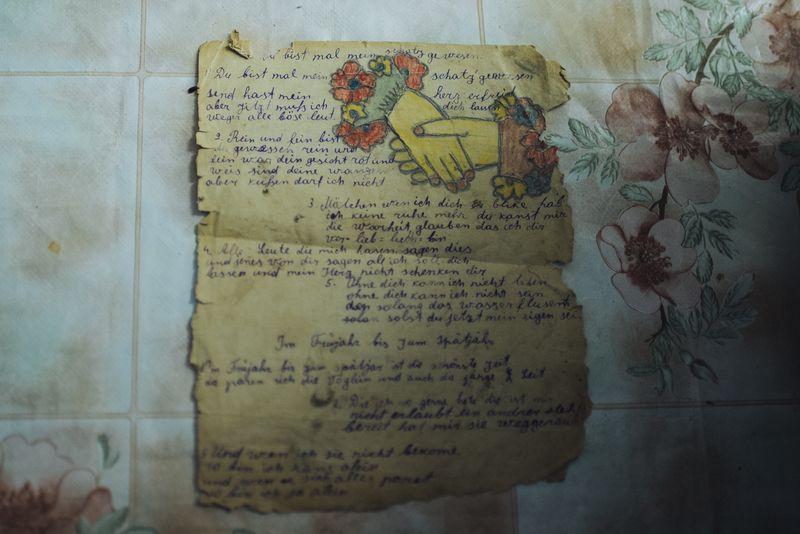 Du bist mal mein schatz gewesen
1 Du bist mal mein schatz gewessen
und hast mein herz erfreid
aber jetzt muß ich dich lasen
wegen alle böse leut
2. Rein und fein bist
du gewessen rein und
fein war dein gesicht rot und
weis sind deine wangen
aber küßen darf ich nicht
3 Mätchen wen ich dich blike hab
ich keine ruhe mehr du kanst mir
die warheit glauben das ich dir
lieb bin
4. Alle Leute die mich hasen sagen dies
und jenes von dir sagen als ich soll dich
lassen und mein Herz nicht schenken dir
5. Ohne dich kann ich nicht leben
ohne dich kann ich nicht sein
den solang das wasser flusend
solan solst du jetzt mein eigen sein
Im Früjahr bis zum Spätjahr
Im Früjahr bis zum spätjar ist die schönste Zeit
da paren sich die Vöglein und auch da Zeit
2. Die ich so gerne hete die ist mir
nicht erlaubt ein andrer steht
bereit hat mir sie weggeraubt
3 Und wen ich sie nicht bekome
so bin ich ganz alein
und wen er sich alles paret
so bin ich so alein